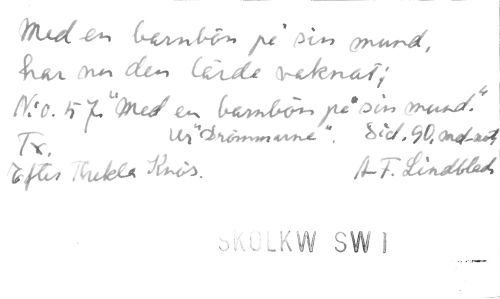 Med en barnbön på sin mund,
har nu den lärde vaknat;
N:o. 57. "Med en barnbön på sin mund."
Tr. Ur "Drömmarne". Sid. 90, md-not
Efter Thekla Knös. A-F. Lindblad
SKOLKW SW I